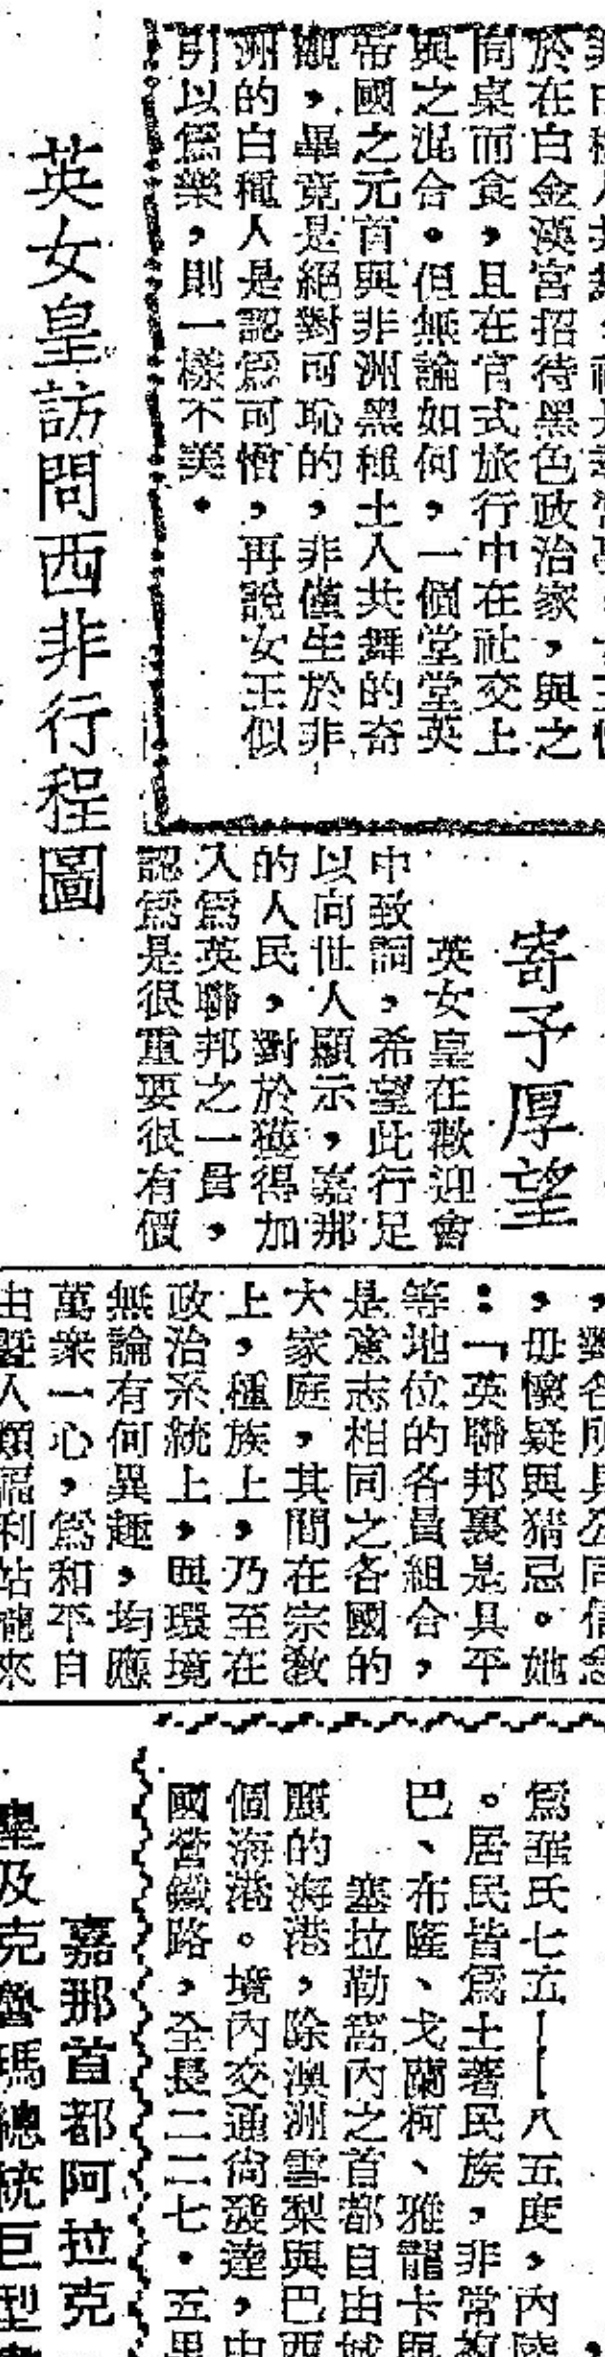 於在白金漢宮招待黑色政治家，與之
同桌而食，且在官式旅行中在社交上
與之混合。但無論如何，一個堂堂英
帝國之元首與非洲黑種土人共舞的奇
觀，畢竟是絕對可恥的，非僅生於非
洲的白種人是認爲可憎，再說女王似
引以爲樂，則一樣不美。
英女皇訪問西非行程圖
寄予厚望
英女皇在歡迎會
中致詞，希望此行足
以向世人顯示，嘉那
的人民，對於獲得加
入爲英聯邦之一員，
認爲是很重要很有價
，對各所具公同信念
，毋懷疑與猜忌。她
：「英聯邦裏是具平
等地位的各員組合，
是意志相同之各國的
大家庭，其間在宗教
上，種族上，乃至在
政治系統上，與環境
無論有何異趣，均應
萬衆一心，爲和平自
由暨人類福利站攏來
爲華氏七五——八五度，內陸
。居民皆爲土著民族，非常複
巴、布隆、戈蘭柯、雅龍卡與
塞拉勒窩內之首都自由城
麗的海港，除澳洲雪梨與巴西
個海港。境內交通尙發達，中
國營鐵路，全長二二七．五里
嘉那首都阿拉克
皇及克魯瑪總統巨型